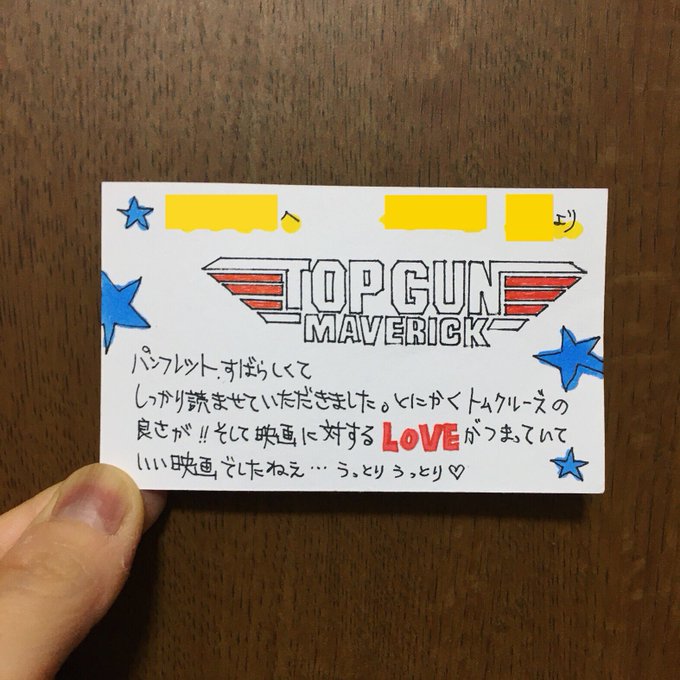 へ より
TOPGUN
MAVERICK
パンフレット、すばらしくて
しっかり読ませていただきました。とにかくトムクルーズの
良さが!!そして映画に対するLOVEがつまっていて
いい映画でしたねえ… うっとりうっとり♡